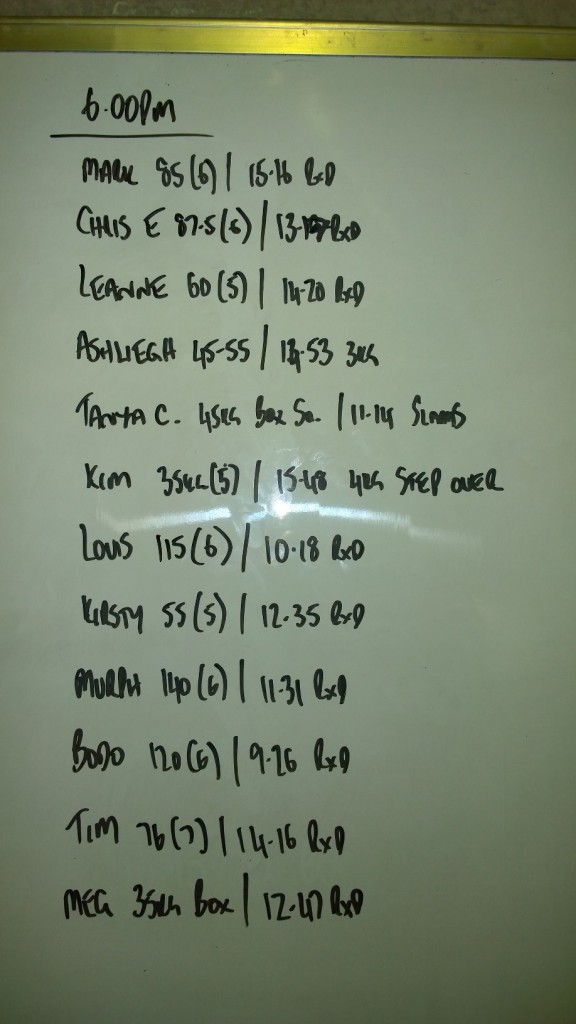 6.00PM
MARK 85(6) | 15.16 RxD
CHRIS E 87.5(6) | RxD
LEANNE 60(5) | 14-20 RxD
ASHLIEGH 45-55 | 53 3KG
TANYA C. 45KG Box SQ. | 11.14
KIM 35KG(5) | 15.48 4KG STEP OVER
LOUIS 115(6) | 10.18 RxD
KIRSTY 55(5) | 12.35 RxD
MURPH 140(6) | 11.31 RxD
BODO 120(6) | 9.26 RxD
TIM 76(7) | 14.16 RxD
MEG 35KG Box | 12.47 RxD